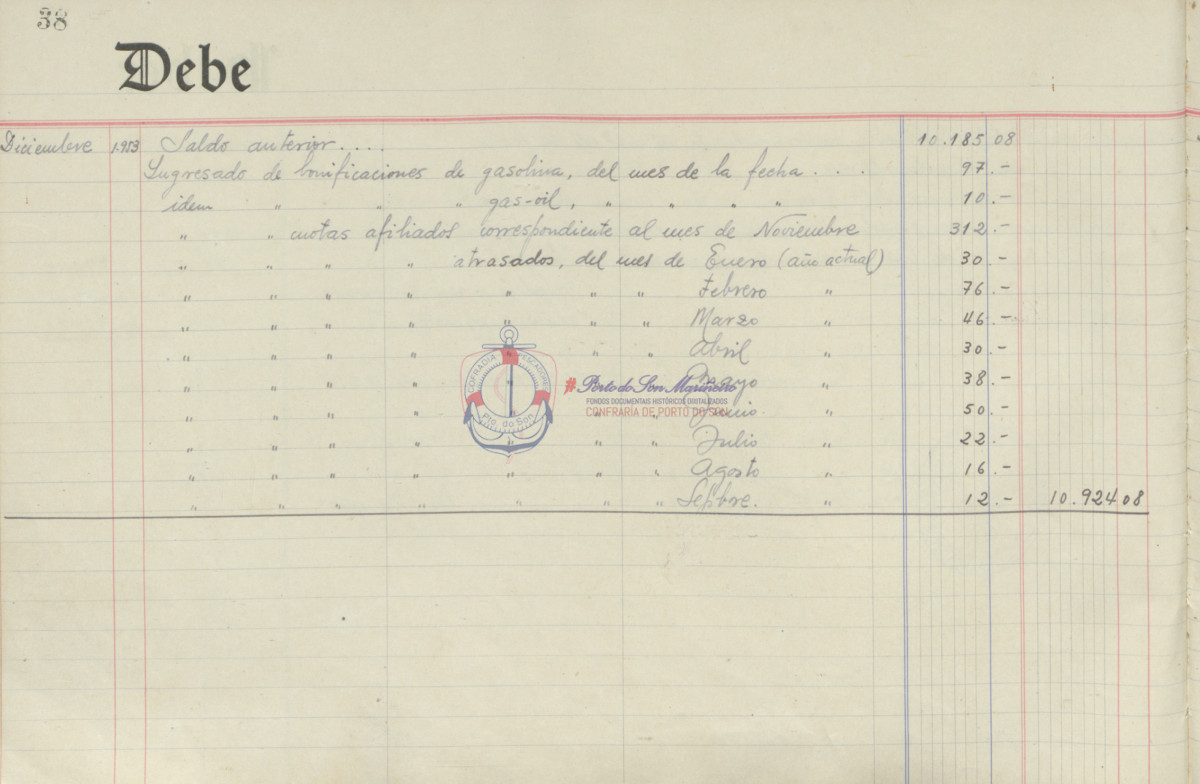 38
Debe
Diciembre 1.953 Saldo anterior.... 10.185 08
Ingresado de bonificaciones de gasolina, del mes de la fecha... 97.-
idem " " " gas-oil, " " " " 10.-
" " cuotas afiliados correspondiente al mes de Noviembre 312.-
" " " " atrasados, del mes de Enero (año actual) 30.-
" " " " " " " Febrero " 76.-
" " " " " " " Marzo " 46.-
" " " " " " " Abril " 30.-
" " " " " Mayo " 38.-
" " " " " " " Junio " 50.-
" " " " " " " Julio " 22.-
" " " " " " " Agosto " 16.-
" " " " " " " Sepbre. " 12.- 10.924 08
COFRADIA PESCADORES
Pto. do Son
# Porto do Son Mariñeiro
FONDOS DOCUMENTAIS HISTÓRICOS DIXITALIZADOS
CONFRARÍA DE PORTO DO SON